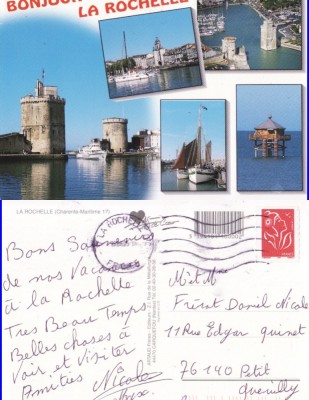 BONJOUR
LA ROCHELLE
LA ROCHELLE (Charente-Maritime 17)
LA ROCHELLE
Bons Souvenirs
de nos Vacances
à la Rochelle
Tres Beau Temps
Belles choses à
Voir et Visiter
Amitiés Nicole
M et Me
Frérat Daniel Nicole
11 Rue Edgar quinet
76140 Petit
Quevilly